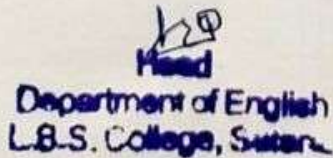 Head
Department of English
L.B.S. College,